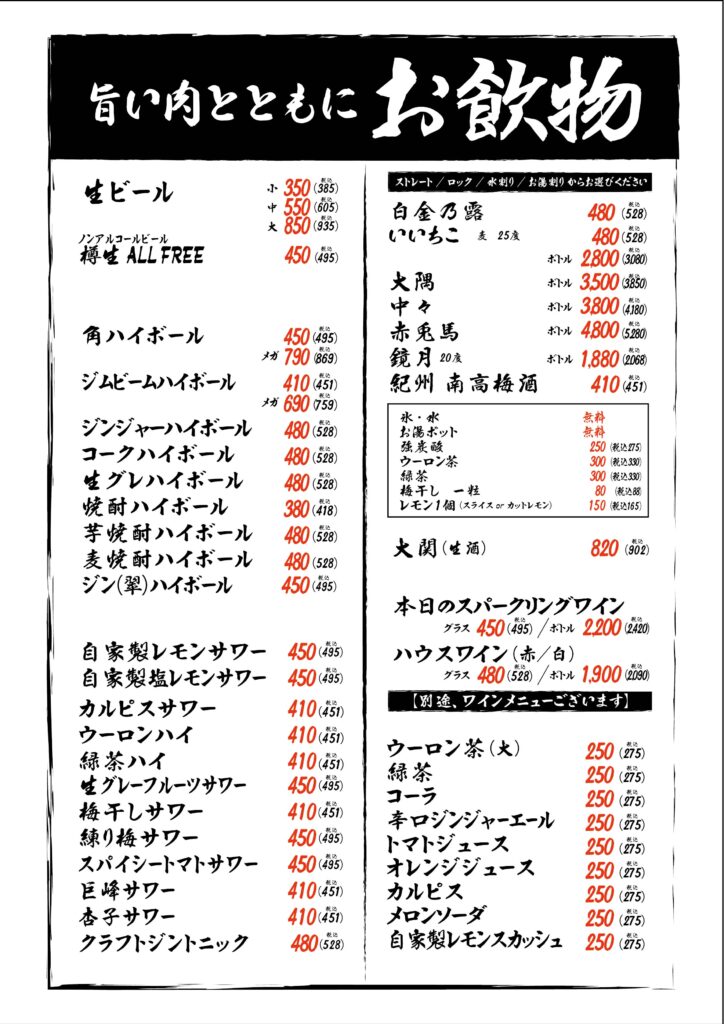 旨い肉とともに お飲物
生ビール 小 350 税込(385)
中 550 税込(605)
大 850 税込(935)
ノンアルコールビール
樽生 ALL FREE 450 税込(495)
角ハイボール 450 税込(495)
メガ 790 税込(869)
ジムビームハイボール 410 税込(451)
メガ 690 税込(759)
ジンジャーハイボール 480 税込(528)
コークハイボール 480 税込(528)
生グレハイボール 480 税込(528)
焼酎ハイボール 380 税込(418)
芋焼酎ハイボール 480 税込(528)
麦焼酎ハイボール 480 税込(528)
ジン(翠)ハイボール 450 税込(495)
自家製レモンサワー 450 税込(495)
自家製塩レモンサワー 450 税込(495)
カルピスサワー 410 税込(451)
ウーロンハイ 410 税込(451)
緑茶ハイ 410 税込(451)
生グレーフルーツサワー 450 税込(495)
梅干しサワー 410 税込(451)
練り梅サワー 450 税込(495)
スパイシートマトサワー 450 税込(495)
巨峰サワー 410 税込(451)
杏子サワー 410 税込(451)
クラフトジントニック 480 税込(528)
ストレート / ロック / 水割り / お湯割りからお選びください
白金乃露 480 税込(528)
いいちこ 麦 25度 480 税込(528)
ボトル 2,800 税込(3080)
大隅 ボトル 3,500 税込(3850)
中々 ボトル 3,800 税込(4180)
赤兎馬 ボトル 4,800 税込(5280)
鏡月 20度 ボトル 1,880 税込(2068)
紀州 南高梅酒 410 税込(451)
氷・水 無料
お湯ポット 無料
強炭酸 250 (税込275)
ウーロン茶 300 (税込330)
緑茶 300 (税込330)
梅干し 一粒 80 (税込88)
レモン1個(スライス or カットレモン) 150 (税込165)
大関(生酒) 820 税込(902)
本日のスパークリングワイン
グラス 450 税込(495) / ボトル 2,200 税込(2420)
ハウスワイン(赤/白)
グラス 480 税込(528) / ボトル 1,900 税込(2090)
【別途、ワインメニューございます】
ウーロン茶(大) 250 税込(275)
緑茶 250 税込(275)
コーラ 250 税込(275)
辛口ジンジャーエール 250 税込(275)
トマトジュース 250 税込(275)
オレンジジュース 250 税込(275)
カルピス 250 税込(275)
メロンソーダ 250 税込(275)
自家製レモンスカッシュ 250 税込(275)